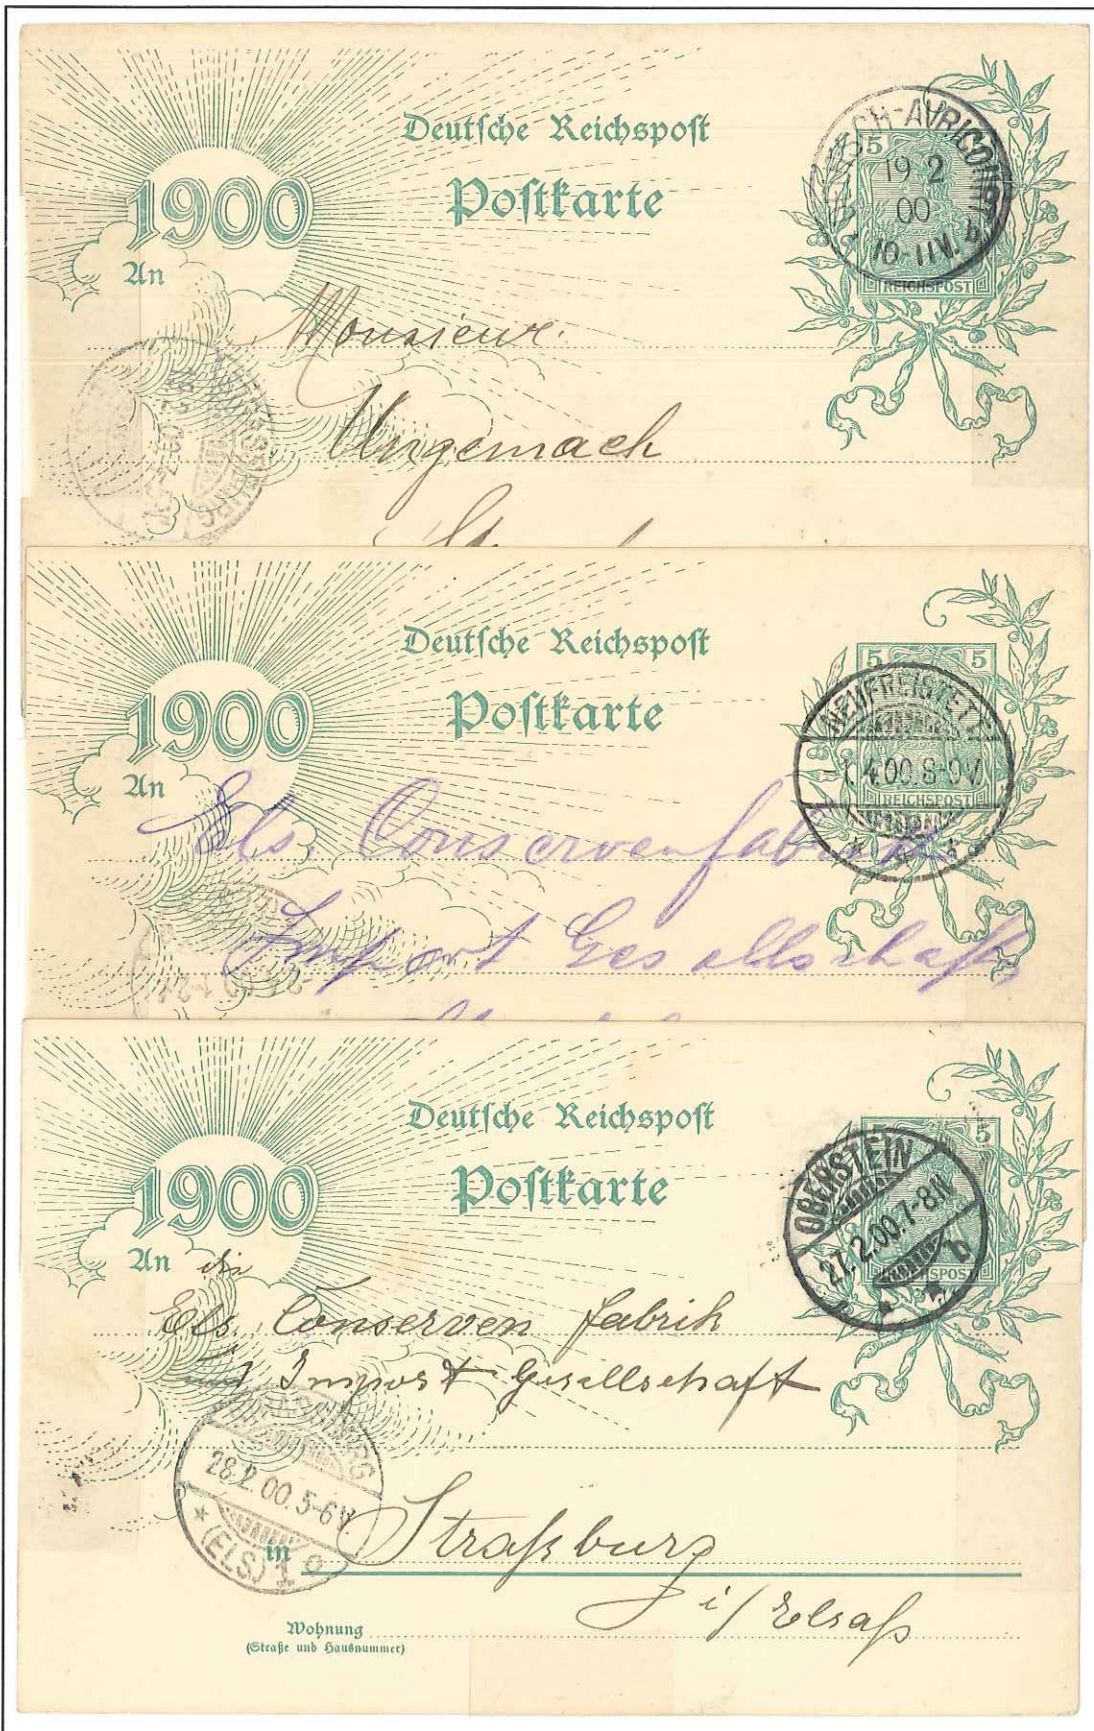 Deutsche Reichspost
Postkarte
1900
An
DEUTSCH-AVRICOURT
19 2
00
10-11V.
5
REICHSPOST
Monsieur
Ungemach
Deutsche Reichspost
Postkarte
1900
An
5 5
REICHSPOST
NEUFREISTETT
-1.4.00.8-9V.
Els. Conservenfabrik
Import Gesellschaft
Deutsche Reichspost
Postkarte
1900
An die
5
REICHSPOST
OBERSTEIN
27.2.00.7-8N
b
Els. Conserven fabrik
und Import Gesellschaft
STRASSBURG
28.2.00.5-6V
(ELS) 1 o
in Straßburg
i/Elsaß
Wohnung
(Straße und Hausnummer)